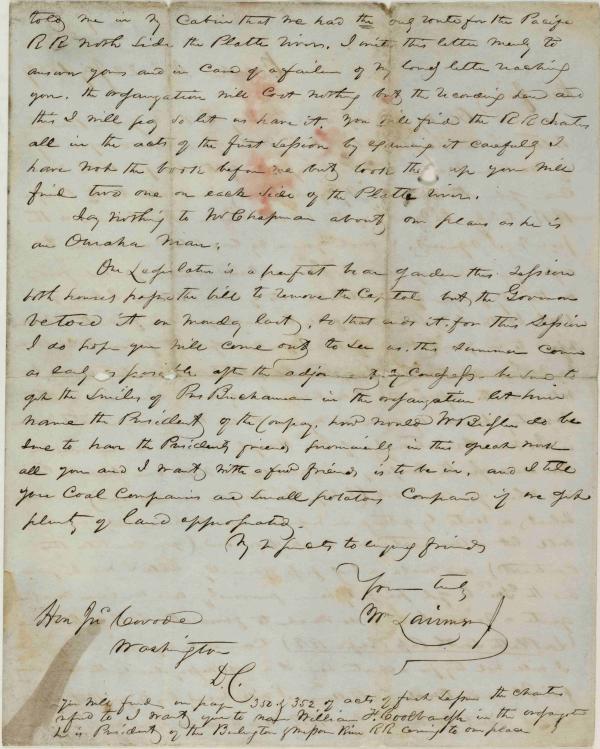 told me in my Cabin that we had the only route for the Pacific
R R North Side the Platte River. I write this letter merely to
answer yours and in Case of a failure of my long letter reaching
you. the organization will Cost nothing but the recording and
this I will pay so let us have it. You will find the R R Charters
all in the acts of the first Session by examining it carefully I
have not the book before me but look up you will
find two one on each Side of the Platte River.
Say nothing to Mr Chapman about our plans as he is
an Omaha Man.
Our Legislature is a perfect bear garden this Session
both houses passed the bill to remove the Capitol but the Governor
vetoed it on Monday last, so that ends it for this Session
I do hope you will come out to See us this Summer come
as early as possible after the adjournment of Congress. be Sure to
get the Smiles of Pres Buchanan in the organization let him
name the President of the Company. how would Wm Bigler do be
Sure to have the Presidents friends in this great work
all you and I want with a few friends is to be in. and I tell
you Coal Companies are Small potatoes Compared if we get
plenty of land appropriated.
My respects to enquiring friends
Yours truly
Wm Larimer Jr
Hon Jno Covode
Washington
D.C.
You will find on page 350 & 352 of acts of first Session the Charters
refered to I want you to name William F. Coolbaugh in the
he is President of the Burlington & Missouri River R R coming to our place